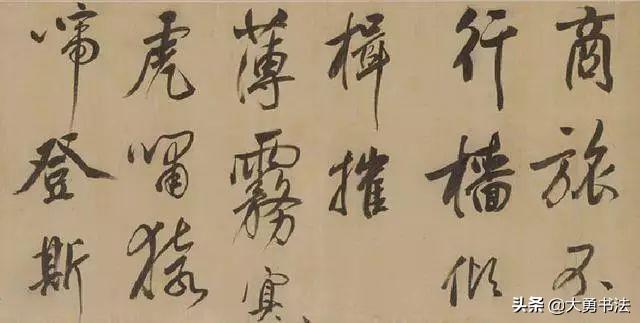 商旅不
行檣傾
楫摧
薄霧冥
虎嘯猿
啼登斯
头条 @大勇书法